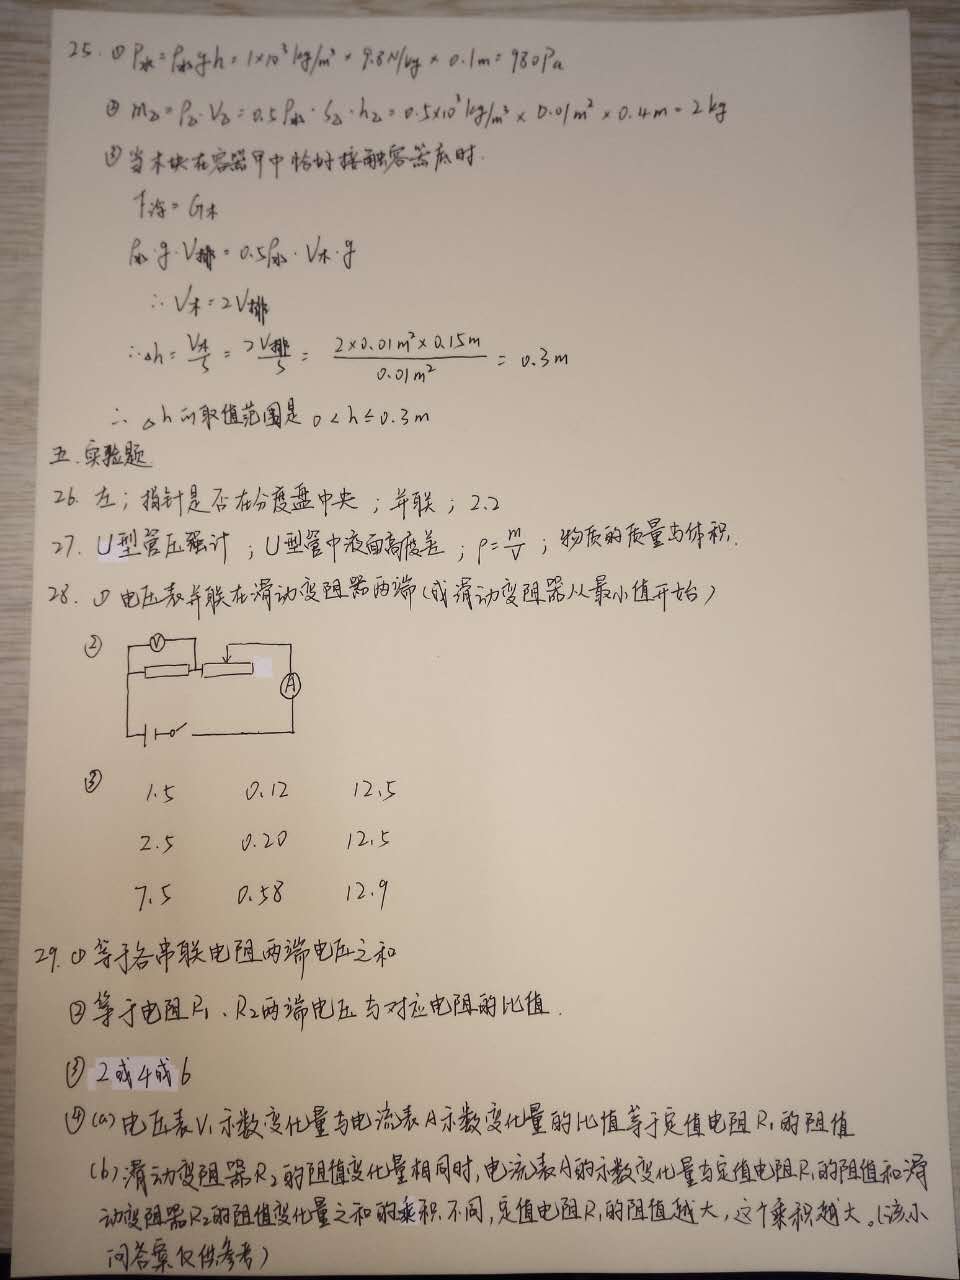 25. ① P水=ρ水gh=1×10³kg/m³×9.8N/kg×0.1m=980Pa
② m乙=ρ乙·V乙=0.5ρ水·S乙·h乙=0.5×10³kg/m³×0.01m²×0.4m=2kg
③ 当木块在容器甲中恰好接触容器底时.
F浮=G木
ρ水·g·V排=0.5ρ水·V木·g
∴V木=2V排
∴△h=V木/S=2V排/S=2×0.01m²×0.15m/0.01m²=0.3m
∴△h的取值范围是 0<h≤0.3m
五.实验题
26. 左；指针是否在分度盘中央；并联；2.2
27. U型管压强计；U型管中液面高度差；ρ=m/V；物质的质量与体积.
28. ① 电压表并联在滑动变阻器两端(或滑动变阻器从最小值开始)
②
V
A
③
1.5 0.12 12.5
2.5 0.20 12.5
7.5 0.58 12.9
29. ① 等于各串联电阻两端电压之和
② 等于电阻R₁、R₂两端电压与对应电阻的比值.
③ 2或4或6
④ (a) 电压表V₁示数变化量与电流表A示数变化量的比值等于定值电阻R₁的阻值
(b) 滑动变阻器R₂的阻值变化量相同时,电流表A的示数变化量与定值电阻R₁的阻值和滑
动变阻器R₂的阻值变化量之和的乘积不同,定值电阻R₁的阻值越大,这个乘积越大。(该小
问答案仅供参考)